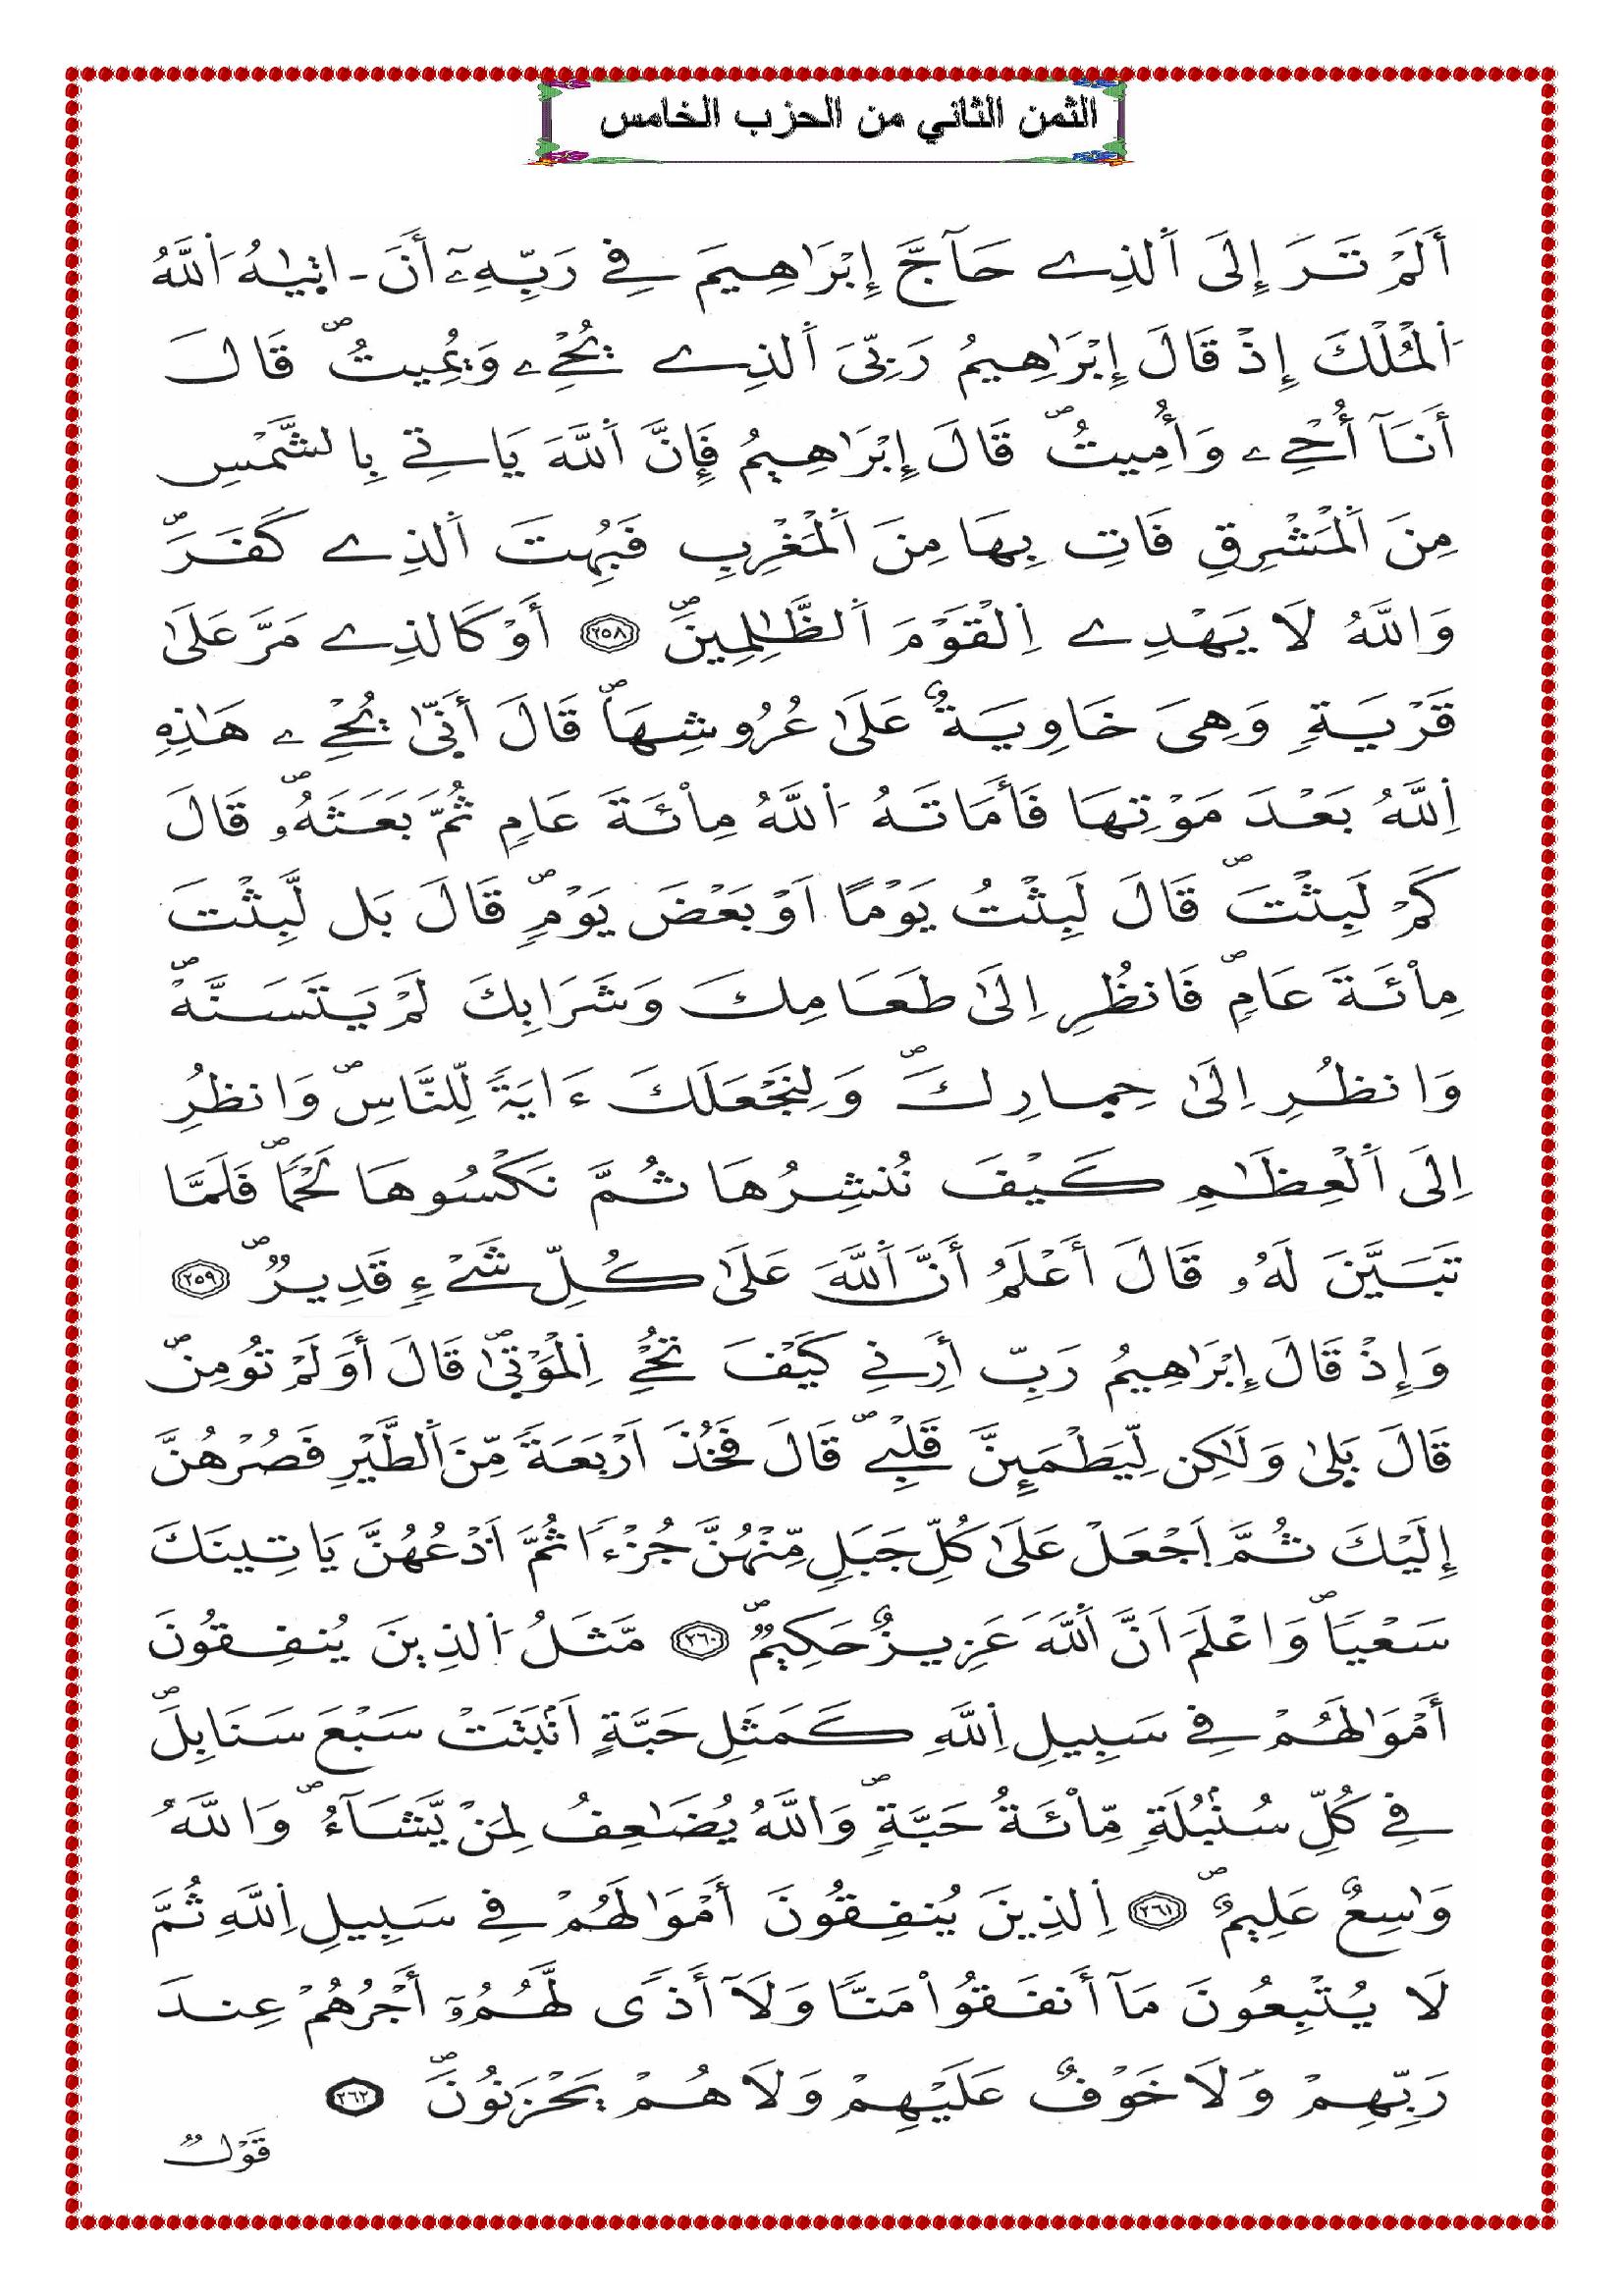 الثمن الثاني من الحزب الخامس
أَلَمْ تَرَ إِلَى اَ۬لذِے حَآجَّ إِبْرَٰهِيمَ فِے رَبِّهِۦٓ أَنَ اٰت۪يٰهُ اُ۬للَّهُ
اُ۬لْمُلْكَ إِذْ قَالَ إِبْرَٰهِيمُ رَبِّيَ اَ۬لذِے يُحْيِۦ وَيُمِيتُۖ قَالَ
أَنَآ أُحْيِۦ وَأُمِيتُۖ قَالَ إِبْرَٰهِيمُ فَإِنَّ اَ۬للَّهَ يَاتِے بِالشَّمْسِ
مِنَ اَ۬لْمَشْرِقِ فَاتِ بِهَا مِنَ اَ۬لْمَغْرِبِ فَبُهِتَ اَ۬لذِے كَفَرَۖ
وَاللَّهُ لَا يَهْدِے اِ۬لْقَوْمَ اَ۬لظَّٰلِمِينَۖ ٢٥٨ أَوْ كَالذِے مَرَّ عَلَىٰ
قَرْيَةٍ وَهِيَ خَاوِيَةٌ عَلَىٰ عُرُوشِهَاۖ قَالَ أَنّ۪ىٰ يُحْيِۦ هَٰذِهِ
اِ۬للَّهُ بَعْدَ مَوْتِهَا فَأَمَاتَهُ اُ۬للَّهُ مِاْئَةَ عَامٍ ثُمَّ بَعَثَهُۥۖ قَالَ
كَمْ لَبِثْتَۖ قَالَ لَبِثْتُ يَوْمًا اَوْ بَعْضَ يَوْمٍۖ قَالَ بَل لَّبِثْتَ
مِاْئَةَ عَامٍۖ فَانظُرِ اِلَىٰ طَعَامِكَ وَشَرَابِكَ لَمْ يَتَسَنَّهْۖ
وَانظُرِ اِلَىٰ حِم۪ارِكَۖ وَلِنَجْعَلَكَ ءَايَةً لِّلنَّاسِۖ وَانظُرِ
اِلَى اَ۬لْعِظَٰمِ كَيْفَ نُنشِرُهَا ثُمَّ نَكْسُوهَا لَحْمًاۖ فَلَمَّا
تَبَيَّنَ لَهُۥ قَالَ أَعْلَمُ أَنَّ اَ۬للَّهَ عَلَىٰ كُلِّ شَےْءٍ قَدِيرٌۖ ٢٥٩
وَإِذْ قَالَ إِبْرَٰهِيمُ رَبِّ أَرِنِے كَيْفَ تُحْيِ اِ۬لْمَوْت۪ىٰۖ قَالَ أَوَلَمْ تُومِنۖ
قَالَ بَل۪ىٰ وَلَٰكِن لِّيَطْمَئِنَّ قَلْبِےۖ قَالَ فَخُذَ اَرْبَعَةً مِّنَ اَ۬لطَّيْرِ فَصُرْهُنَّ
إِلَيْكَ ثُمَّ اَ۪جْعَلْ عَلَىٰ كُلِّ جَبَلٍ مِّنْهُنَّ جُزْءًا ثُمَّ اَ۟دْعُهُنَّ يَاتِينَكَ
سَعْيًاۖ وَاعْلَمَ اَنَّ اَ۬للَّهَ عَزِيزٌ حَكِيمٌۖ ٢٦٠ مَّثَلُ اُ۬لذِينَ يُنفِقُونَ
أَمْوَٰلَهُمْ فِے سَبِيلِ اِ۬للَّهِ كَمَثَلِ حَبَّةٍ اَنۢبَتَتْ سَبْعَ سَنَابِلَۖ
فِے كُلِّ سُنۢبُلَةٍ مِّاْئَةُ حَبَّةٍۖ وَاللَّهُ يُضَٰعِفُ لِمَنْ يَّشَآءُۖ وَاللَّهُ
وَٰسِعٌ عَلِيمٌۖ ٢٦١ اِ۬لذِينَ يُنفِقُونَ أَمْوَٰلَهُمْ فِے سَبِيلِ اِ۬للَّهِ ثُمَّ
لَا يُتْبِعُونَ مَآ أَنفَقُواْ مَنًّا وَلَآ أَذًى لَّهُمُۥٓ أَجْرُهُمْ عِندَ
رَبِّهِمْ وَلَا خَوْفٌ عَلَيْهِمْ وَلَا هُمْ يَحْزَنُونَۖ ٢٦٢
قَوْلٌ